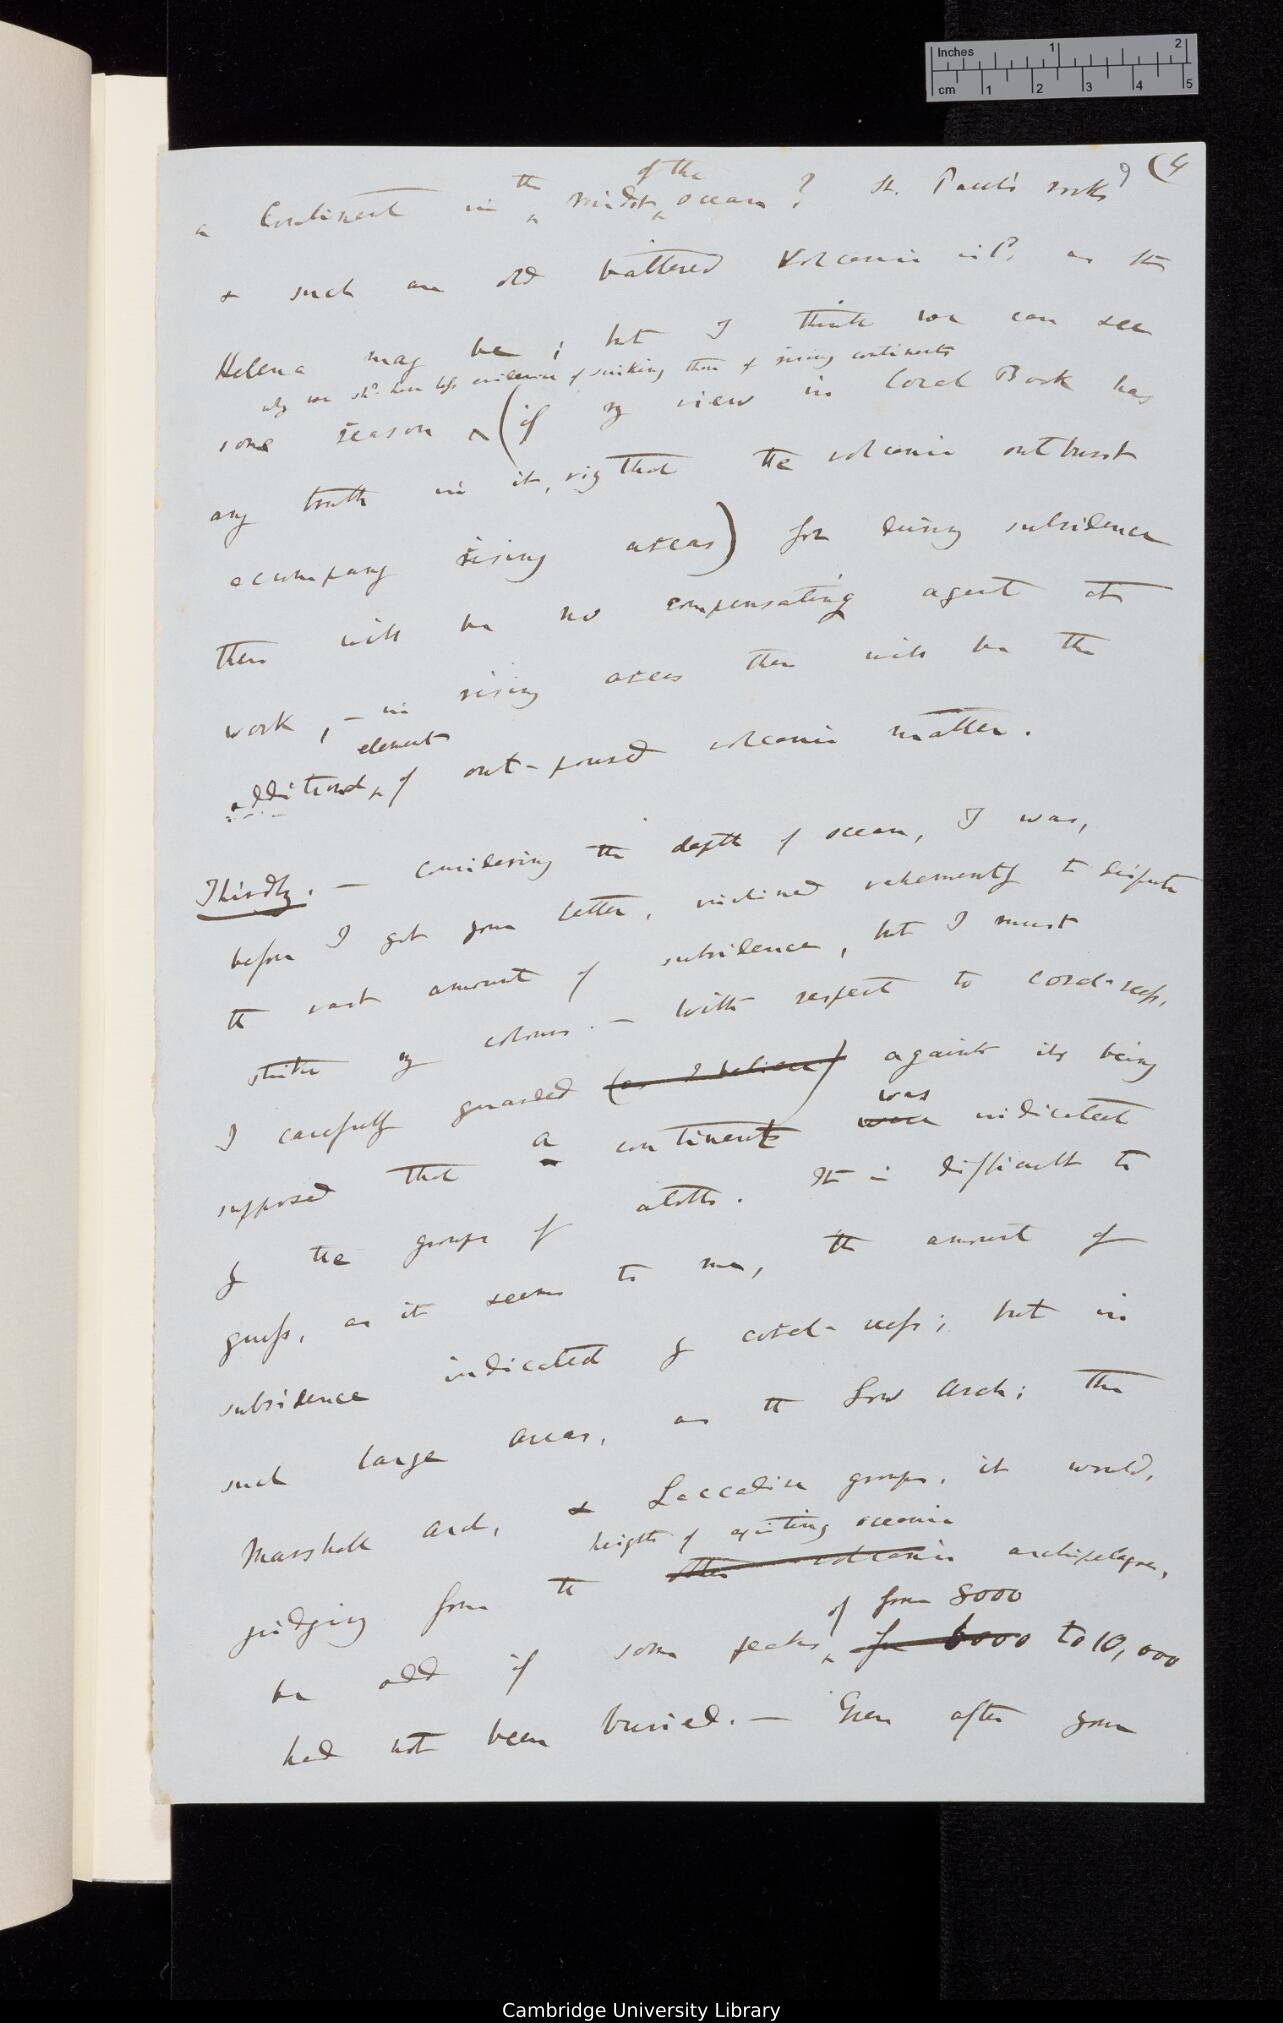 Inches 1 2
cm 1 2 3 4 5
9 (4
the of the
a Continent in midst ocean? St. Paul's rocks
& such an old battered volcanic isld, as St
Helena may be; but I think we can see
why we shd. have less evidence of sinking than of rising continents
some reason (if my view in Coral Book has
any truth in it, viz that the volcanic outburst
accompany rising areas) for during subsidence
there will be no compensating agent at
work, — in rising areas there will be the
element
additional of out-poured volcanic matter.
Thirdly. — Considering the depth of ocean, I was,
before I got your letter, inclined vehemently to dispute
the vast amount of subsidence, but I must
strike my colours. — With respect to coral-reefs,
I carefully guarded (as I believe) against its being
was
supposed that a continent were indicated
by the groups of atolls. It is difficult to
guess, as it seems to me, the amount of
subsidence indicated by coral-reefs; but in
such large areas, as the Low Arch; the
Marshall Arch, & Laccadive groups, it would,
heights of existing oceanic
judging from the other volcanic archipelagoes,
of from 8000
be odd if some peaks for 6000 to 10,000
had not been buried. — Even after your
Cambridge University Library